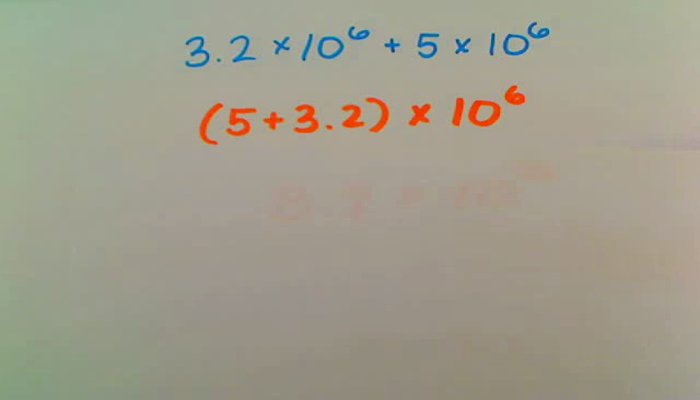 3.2 × 10⁶ + 5 × 10⁶
(5 + 3.2) × 10⁶